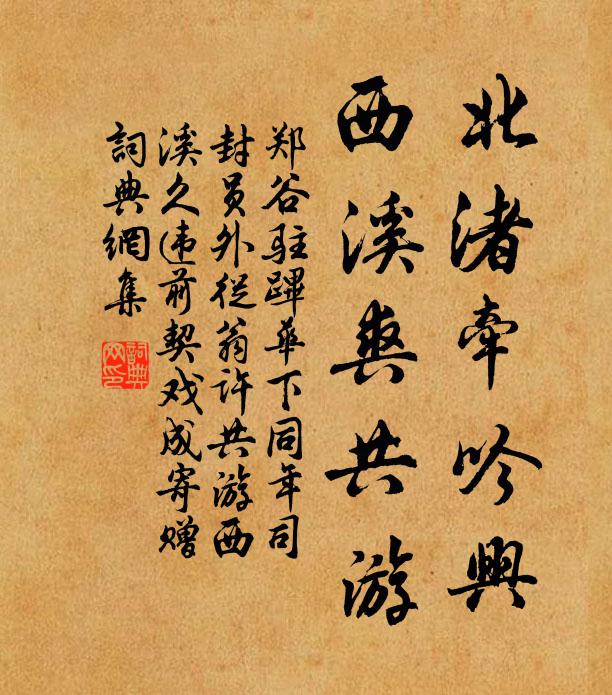 北渚牽吟興
西溪爽共游
郑谷駐蹕華下同年司
封员外從翁许共游西
溪久违前契戏成寄贈
詞典網集
詞典网印